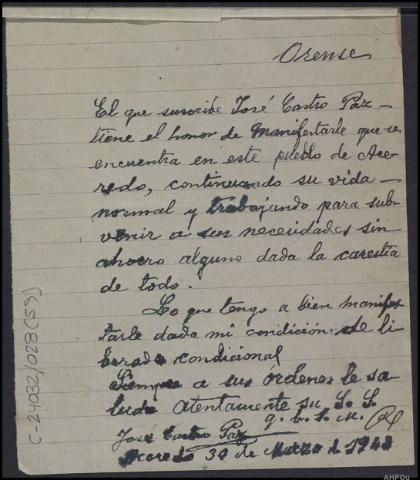 Orense
El que suscribe José Castro Paz
tiene el honor de Manifestarle que se
encuentra en este pueblo de Ace-
redo, continuando su vida
normal y trabajando para sub-
venir a sus necesidades sin
ahorro alguno dada la carestia
de todo.
Lo que tengo a bien manifes
tarle dada mi condición de li
berrado condicional
Siempre a sus órdenes le sa
luda atentamente su S. S.
q. e. s. m.
José Castro Paz
Aceredo 30 de Marzo d 1942
C-24032/028(59)
AHPOu